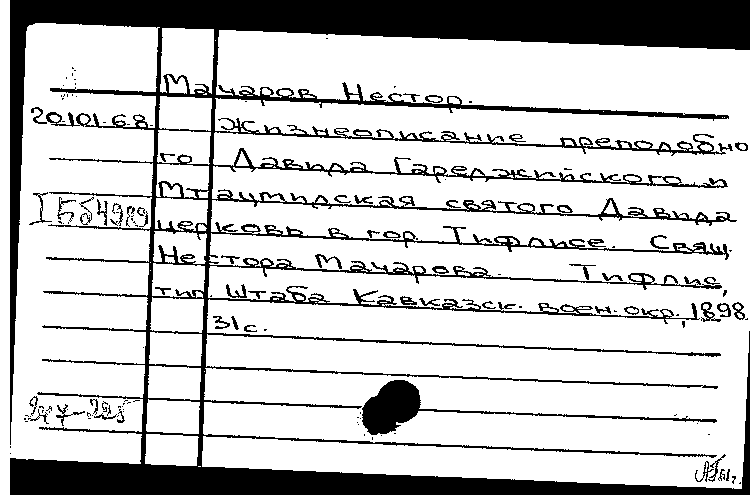 Мачаров, Нестор.
20101.68. Жизнеописание преподобно
го Давида Гареджийского и
Мтацминдская святого Давида
церковь в гор. Тифлисе. Свящ.
Нестора Мачарова. Тифлис,
тип. Штаба Кавказск. воен. окр., 1898.
31 с.